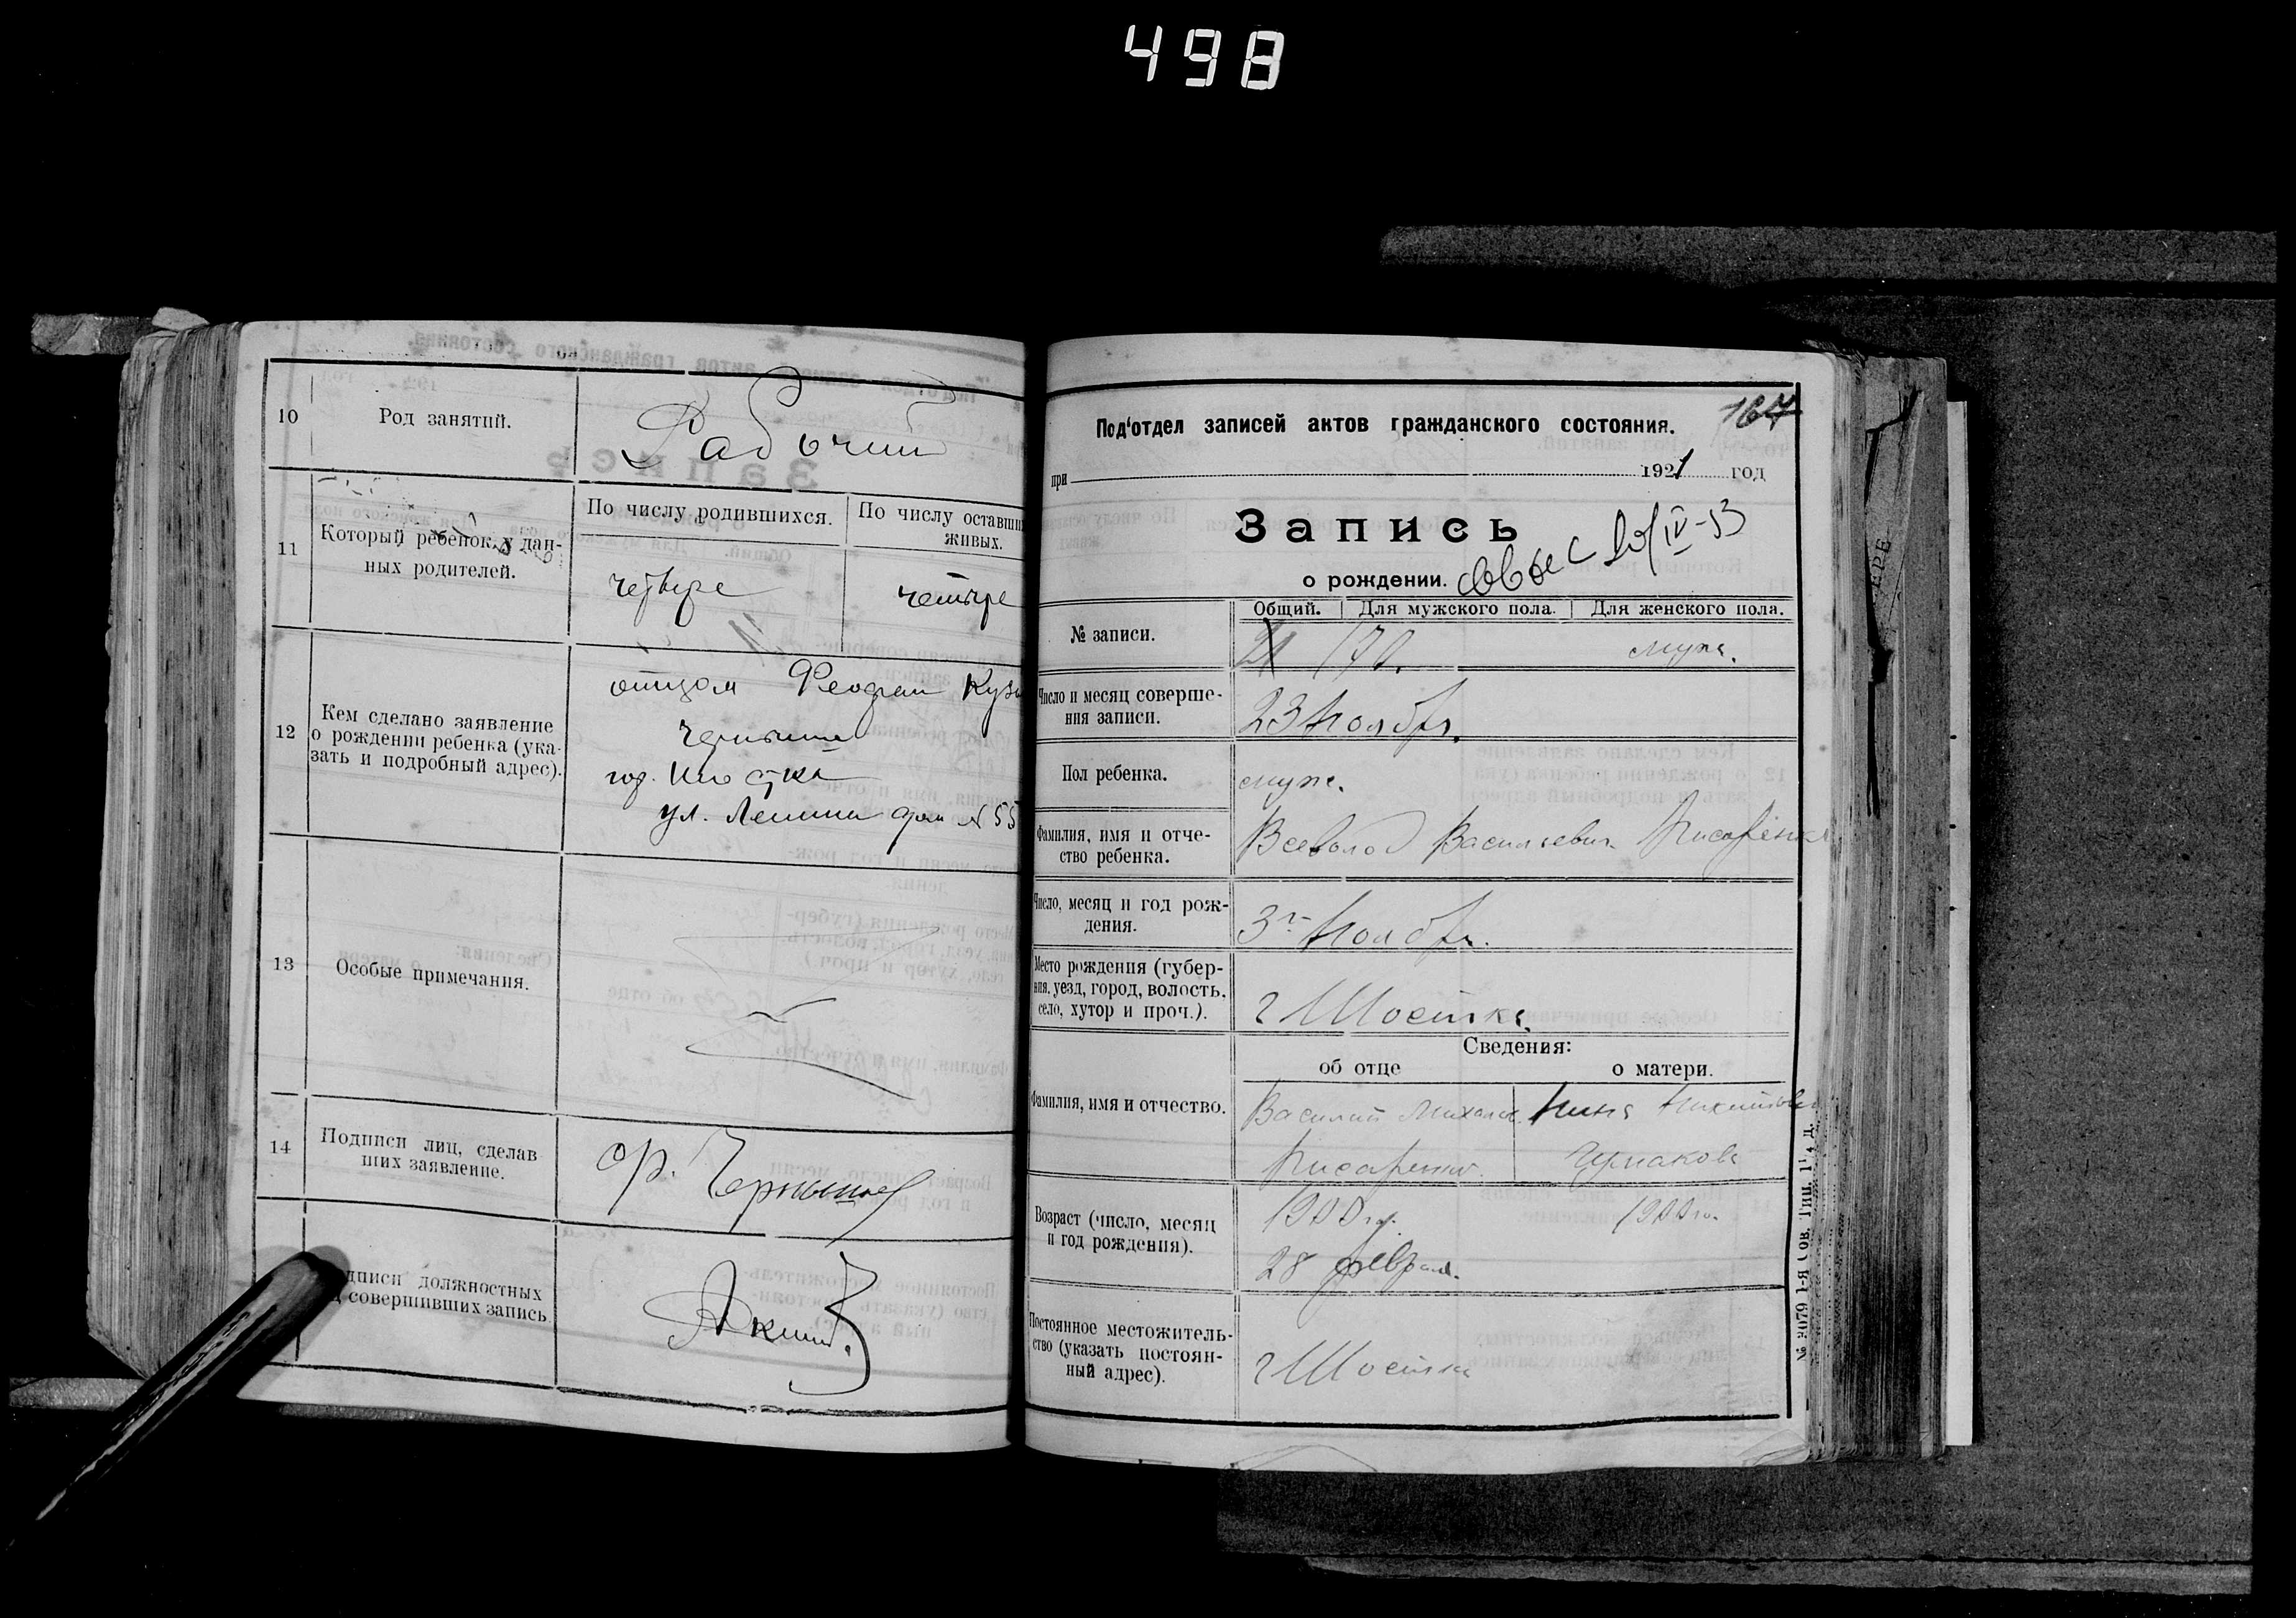 498
10
Род занятий.
Рабочий
11
Который ребенок у дан-
ных родителей.
По числу родившихся.
По числу оставши
живых.
четыре
четыре
12
Кем сделано заявление
о рождении ребенка (ука-
зать и подробный адрес).
отцом Феодром Кузь
гор. Шостка
ул. Ленина дом № 55
13
Особые примечания.
14
Подписи лиц, сделав
ших заявление.
дписи должностных
совершивших запись
167
Под‘отдел записей актов гражданского состояния.
при 1921 год
Запись
о рождении.
IV-53
Общий. Для мужского пола. Для женского пола.
№ записи.
21 170. муж.
Число и месяц соверше-
ния записи.
23 Ноября.
Пол ребенка.
муж.
Фамилия, имя и отче-
ство ребенка.
Всеволод Васильевич Писаренко
Число, месяц и год рож-
дения.
3го Ноября.
Место рождения (губер-
ния, уезд, город, волость,
село, хутор и проч.).
г Шостка.
Сведения:
об отце о матери.
Фамилия, имя и отчество.
Василий Михайл. Нина Никитовна
Писаренко.
Возраст (число, месяц
и год рождения).
1900 г. 1900 г.
28 февраля.
Постоянное местожитель-
ство (указать постоян-
ный адрес).
г Шостка